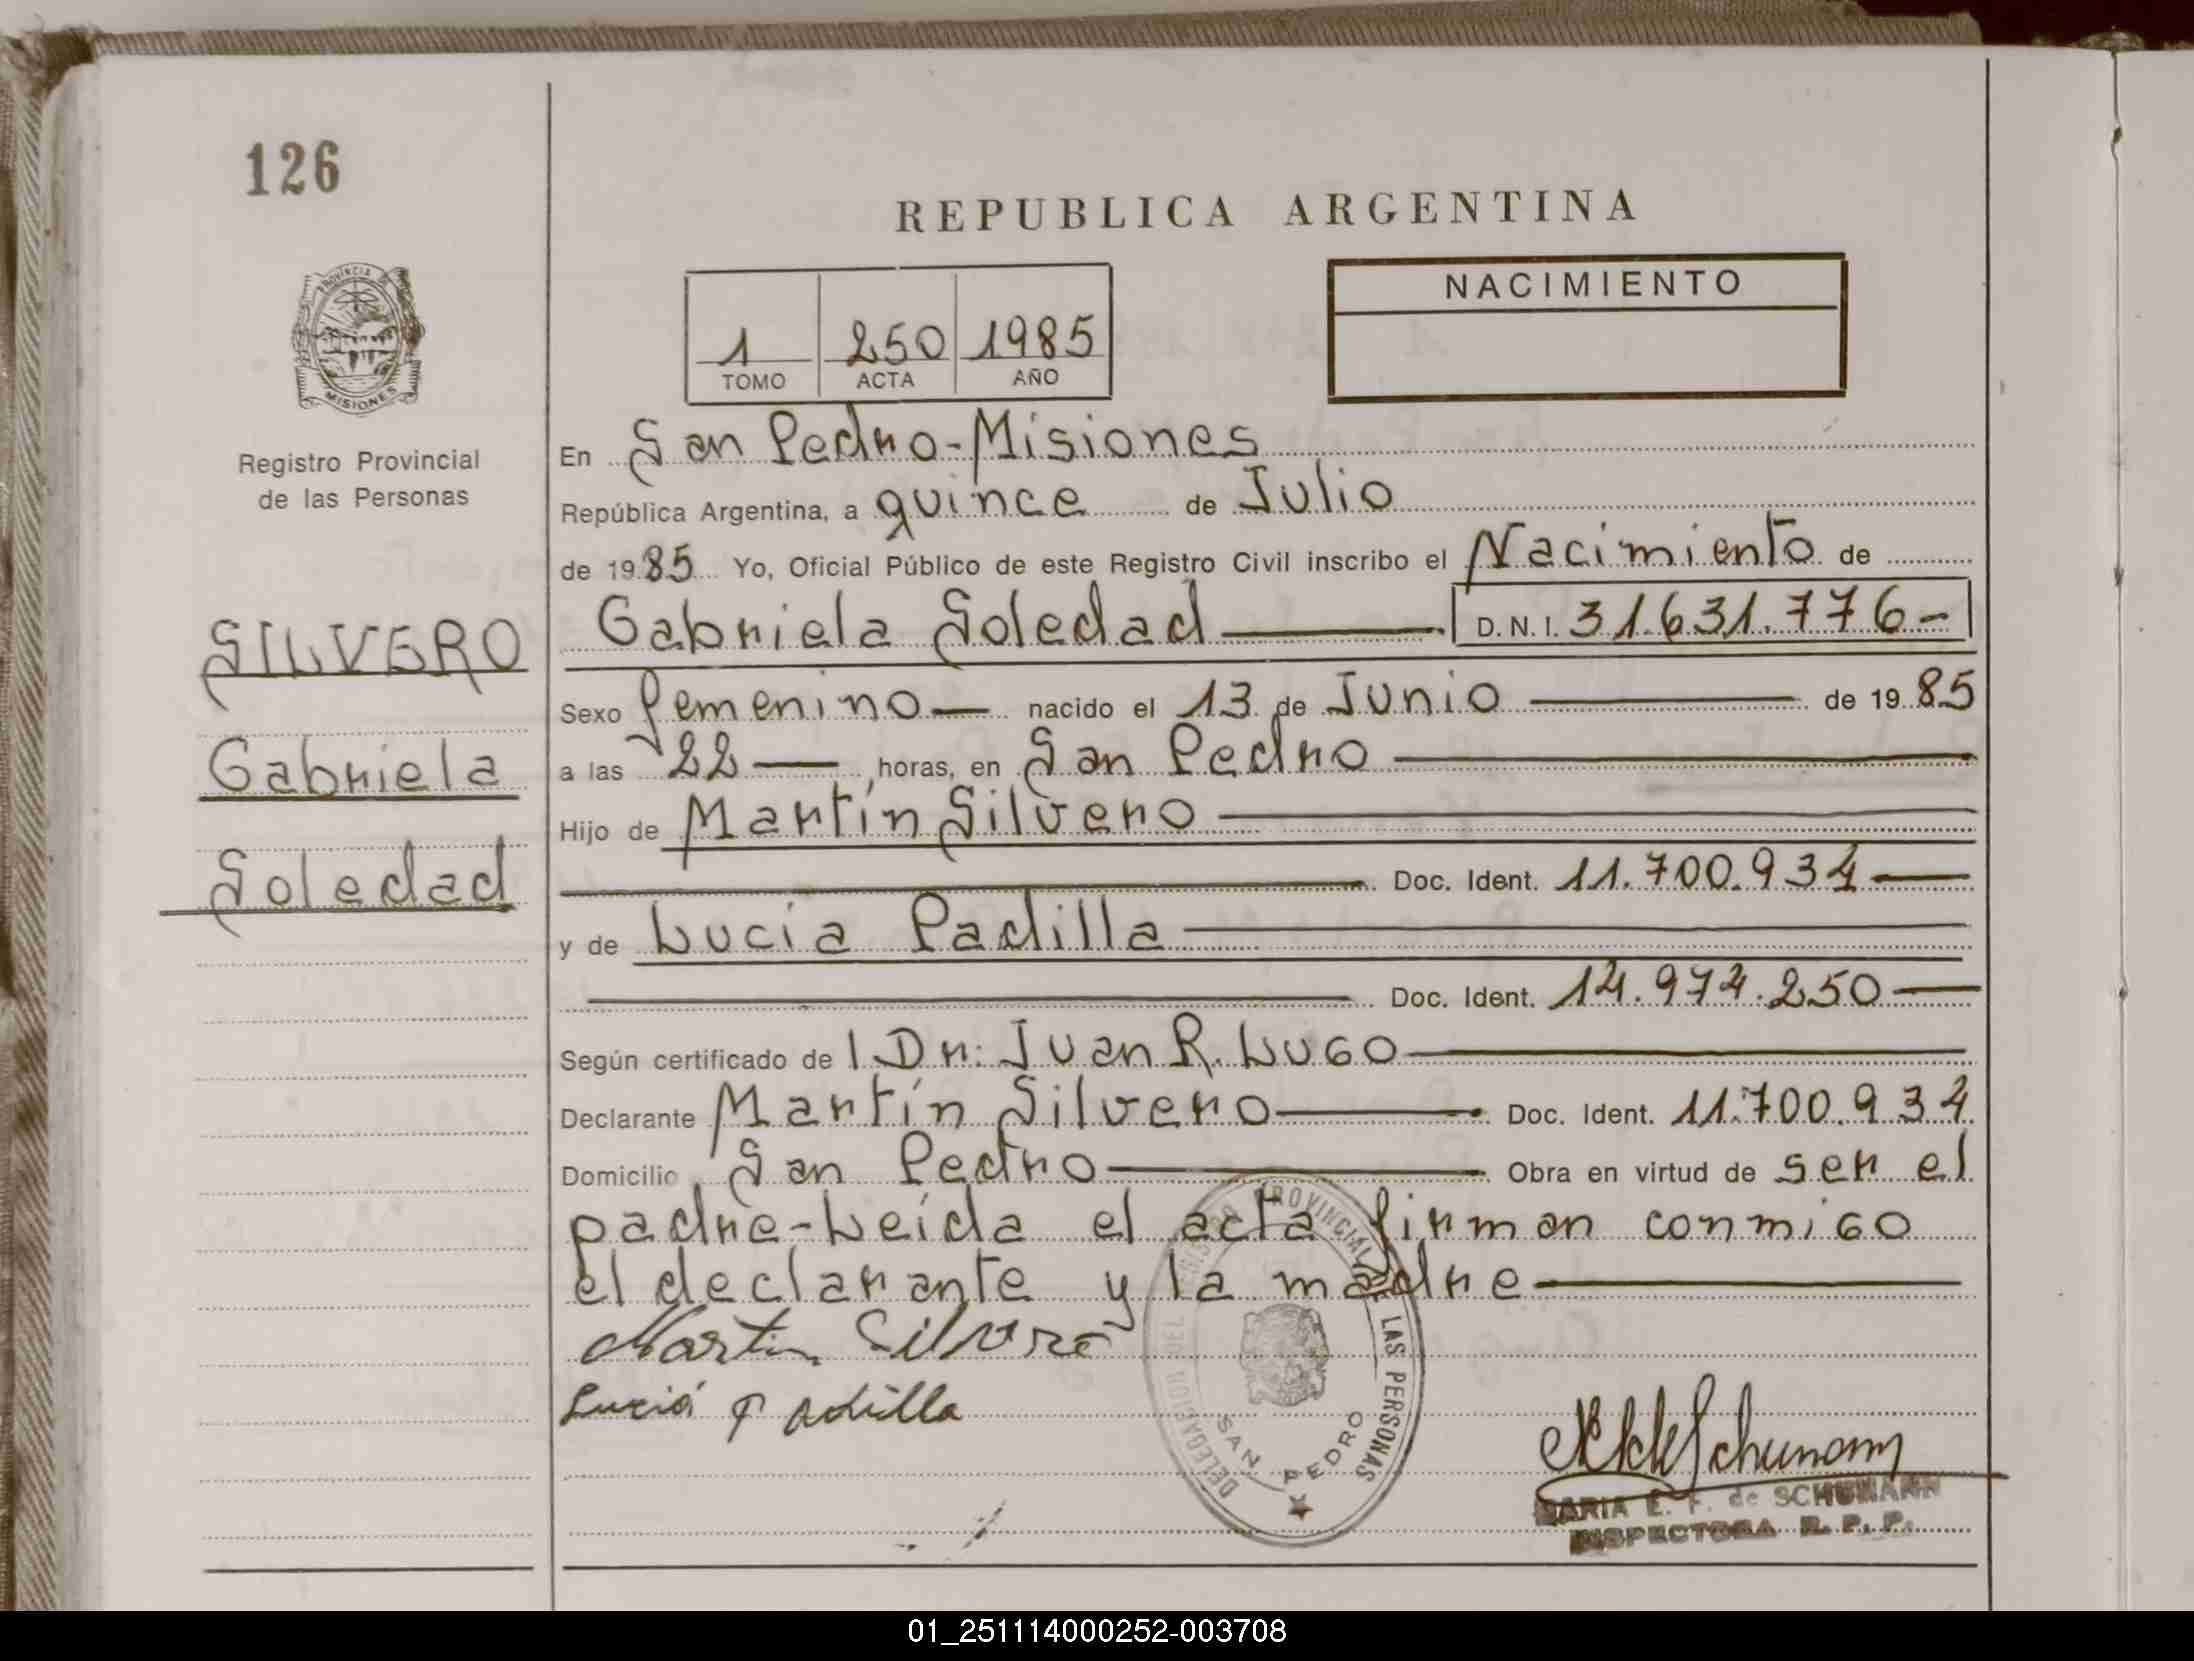 126
REPUBLICA ARGENTINA
PROVINCIA DE
MISIONES
Registro Provincial
de las Personas
NACIMIENTO
1 250 1985
TOMO ACTA AÑO
En San Pedro-Misiones
República Argentina, a quince de Julio
de 1985 Yo, Oficial Público de este Registro Civil inscribo el Nacimiento de
Gabriela Soledad D.N.I. 31.631.776-
SILVERO
Gabriela
Soledad
Sexo femenino nacido el 13 de Junio de 1985
a las 22 horas, en San Pedro
Hijo de Martín Silvero
Doc. Ident. 11.700.934
y de Lucía Padilla
Doc. Ident. 14.974.250
Según certificado de l Dr: Juan R. LUGO
Declarante Martín Silvero Doc. Ident. 11.700.934
Domicilio San Pedro Obra en virtud de ser el
padre-Leída el acta firman conmigo
el declarante y la madre
Martin Silvero
Luciá Padilla
DELEGACION DEL REGISTRO PROVINCIAL DE LAS PERSONAS
SAN PEDRO
MARIA E. F. de SCHUMANN
INSPECTORA R. P. P.
01_251114000252-003708